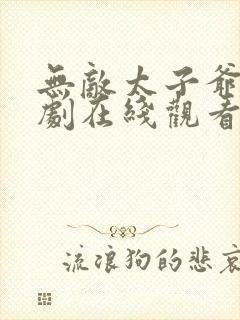 無敵太子爺
劇在綫觀看
流浪狗的悲哀